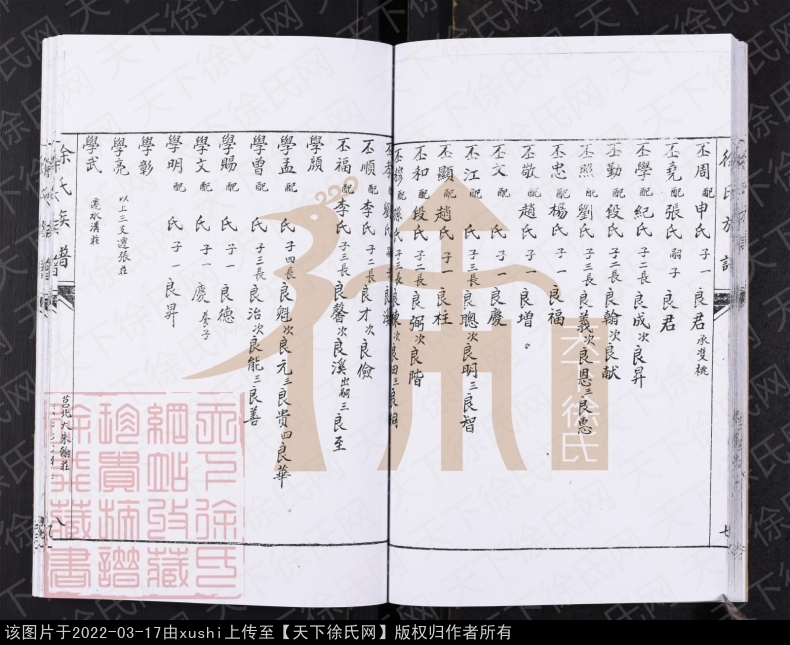 丕周 配 申氏 子一 良君 承雙祧
丕堯 配 張氏 嗣子 良君
丕學 配 紀氏 子二長 良成 次 良昇
丕勤 配 段氏 子二長 良翰 次 良献
丕照 配 劉氏 子三長 良義 次 良恩 三 良惠
丕忠 配 楊氏 子一 良福
丕敬 配 趙氏 子一 良增
丕文 配 氏 子一 良慶
丕江 配 氏 子三長 良聰 次 良明 三 良智
丕顯 配 趙氏 子一 良柱
丕和 配 段氏 子二長 良弼 次 良階
丕順 配 李氏 子二長 良才 次 良儉
丕福 配 李氏 子三長 良馨 次 良溪 出嗣 三 良至
學顏
學孟 配 氏 子四長 良魁 次 良元 三 良貴 四 良華
學曾 配 氏 子三長 良治 次 良能 三 良善
學賜 配 氏 子一 良德
學文 配 氏 子一 慶 養子
學明 配 氏 子一 良昇
學彰
學亮 以上三支遷張莊
學武 遷水溝莊
徐氏族譜
八
七
莒北大朱翰莊
天下徐氏
天下徐氏网
天下徐氏
網站收藏
珍貴族譜
徐興藏書
该图片于2022-03-17由xushi上传至【天下徐氏网】版权归作者所有